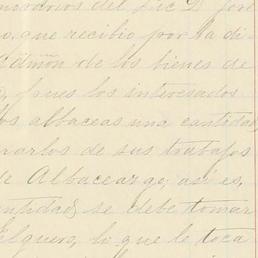 honorarios del Lic D. José
o, que recibio por la di-
Admón de los bienes de
, pues los interesados
los albaceas una cantidad
rarlos de sus trabajos
de Albaceazgo; así es,
cantidad se debe tomar
elguero, lo que le toca